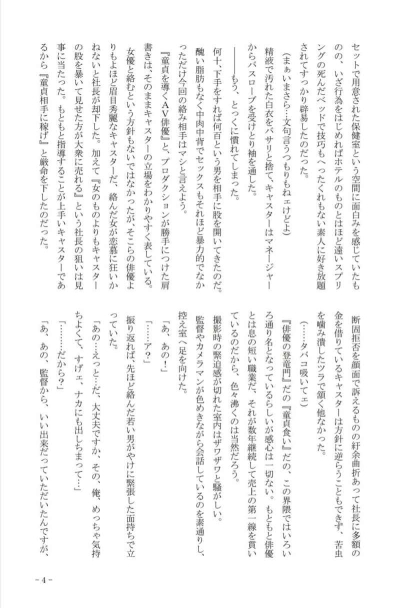 セットで用意された保健室という空間に面白みを感じていたも
のの、いざ行為をはじめればホテルのものとはほど遠いスプリ
ングの死んだベッドで技巧もへったくれもない素人に好き放題
されてすっかり辟易したのだった。
(まぁいまさら…文句言うつもりもねェけどよ)
精液で汚れた白衣をバサリと捨て、キャスターはマネージャー
からバスローブを受けとり袖を通した。
――もう、とっくに慣れてしまった。
何十、下手をすれば何百という男を相手に股を開いてきたのだ。
醜い脂肪もなく中肉中背でセックスもそれほど暴力的でなか
っただけ今回の絡み相手はマシと言えよう。
『童貞を導くAV俳優』と、プロダクションが勝手につけた肩
書きは、そのままキャスターの立場をわかりやすく表している。
女優と絡むという方針もないではなかったが、そこらの俳優よ
りもよほど眉目秀麗なキャスターだ、絡んだ女が恋慕に狂いか
ねないと社長が却下した。加えて『女のものよりもキャスター
の股を暴いて見せた方が大衆に売れる』という社長の狙いは見
事に当たった。もともと指導することが上手いキャスターであ
るから『童貞相手に稼げ』と厳命を下したのだった。
断固拒否を顔面で訴えるものの紆余曲折あって社長に多額の
金を借りているキャスターは方針に逆らうこともできず、苦虫
を噛み潰したツラで頷く他なかった。
(……タバコ吸いてェ)
『俳優の登竜門』だの『童貞食い』だの、この界隈ではいろい
ろ通り名となっているらしいが感心は一切ない。もともと俳優
とは息の短い職業だ、それが数年継続して売上の第一線を買い
ているのだから、色々沸くのは当然だろう。
撮影時の緊迫感が切れた室内はザワザワと騒がしい。
監督やカメラマンが色めきながら会話しているのを素通りし、
控え室へ足を向けた。
「あ、あの!」
「……ア?」
振り返れば、先ほど絡んだ若い男がやけに緊張した面持ちで立
っていた。
「あの…えっと…だ、大丈夫ですか、その、俺、めっちゃ気持
ちよくて、すげェ、ナカにも出しちまって…」
「………だから?」
「あ、あの、監督から、いい出来だっていただいたんですが、
-4-